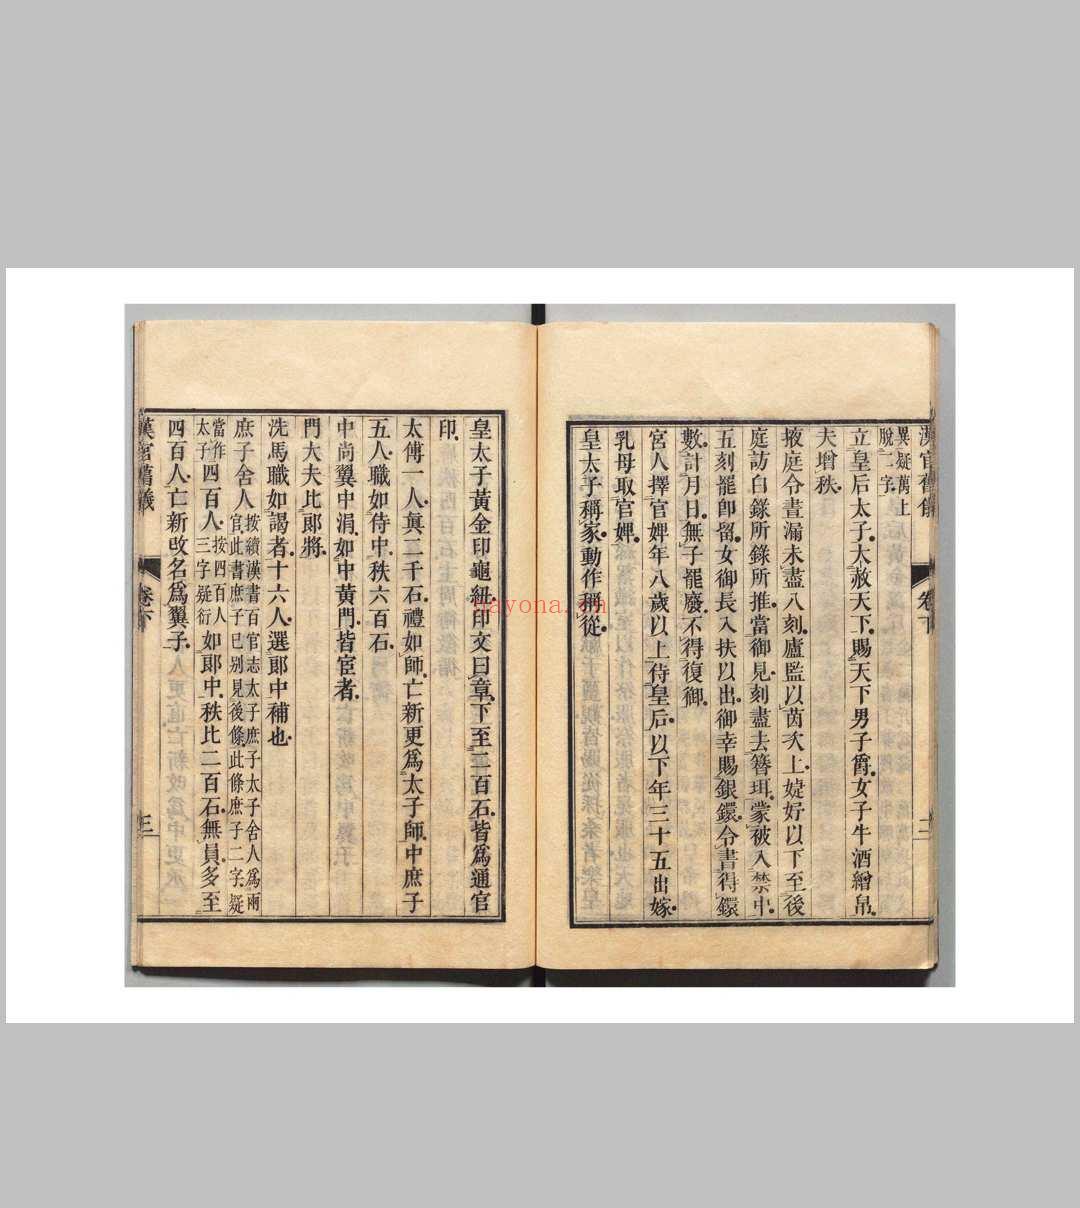 漢官舊儀
卷下
三
異疑萬上
脫二字
立皇后太子大赦天下賜天下男子爵女子牛酒繒帛
夫增秩
掖庭令晝漏未盡八刻廬監以茵次上婕好以下至後
庭訪白錄所錄所推當御見刻盡去簪珥蒙被入禁中
五刻罷卽留女御長入扶以出御幸賜銀鐶令書得鐶
數計月日無子罷廢不得復御
宮人擇官婢年八歲以上侍皇后以下年三十五出嫁
乳母取官婢
皇太子稱家動作稱從
皇太子黃金印龜紐印文曰章下至二百石皆爲通官
印
太傅一人眞二千石禮如師亡新更爲太子師中庶子
五人職如侍中秩六百石
中尚翼中涓如中黃門皆宦者
門大夫比郞將
洗馬職如謁者十六人選郞中補也
庶子舍人按續漢書百官志太子庶子太子舍人爲兩
官此書庶子已別見後條此條庶子二字疑
當作
太子四百人按四百人
三字疑衍如郞中秩比二百石無員多至
四百人亡新改名爲翼子
漢官舊儀
卷下
三
nayona.cn